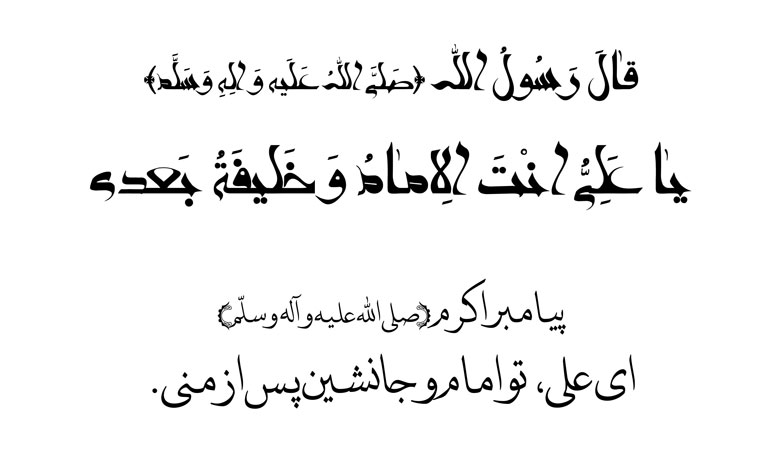 قٰالَ رَسُولُ اللّٰه (صَلَّی اللّٰهُ عَلَیهِ وَ الِهِ وَسَلَّم)
یٰا عَلِیُّ انْتَ الِامٰامُ وَ خَلیفَةُ بَعدی
پیامبر اکرم (صلی الله علیه و آله و سلّم)
ای علی، تو امام و جانشین پس از منی.